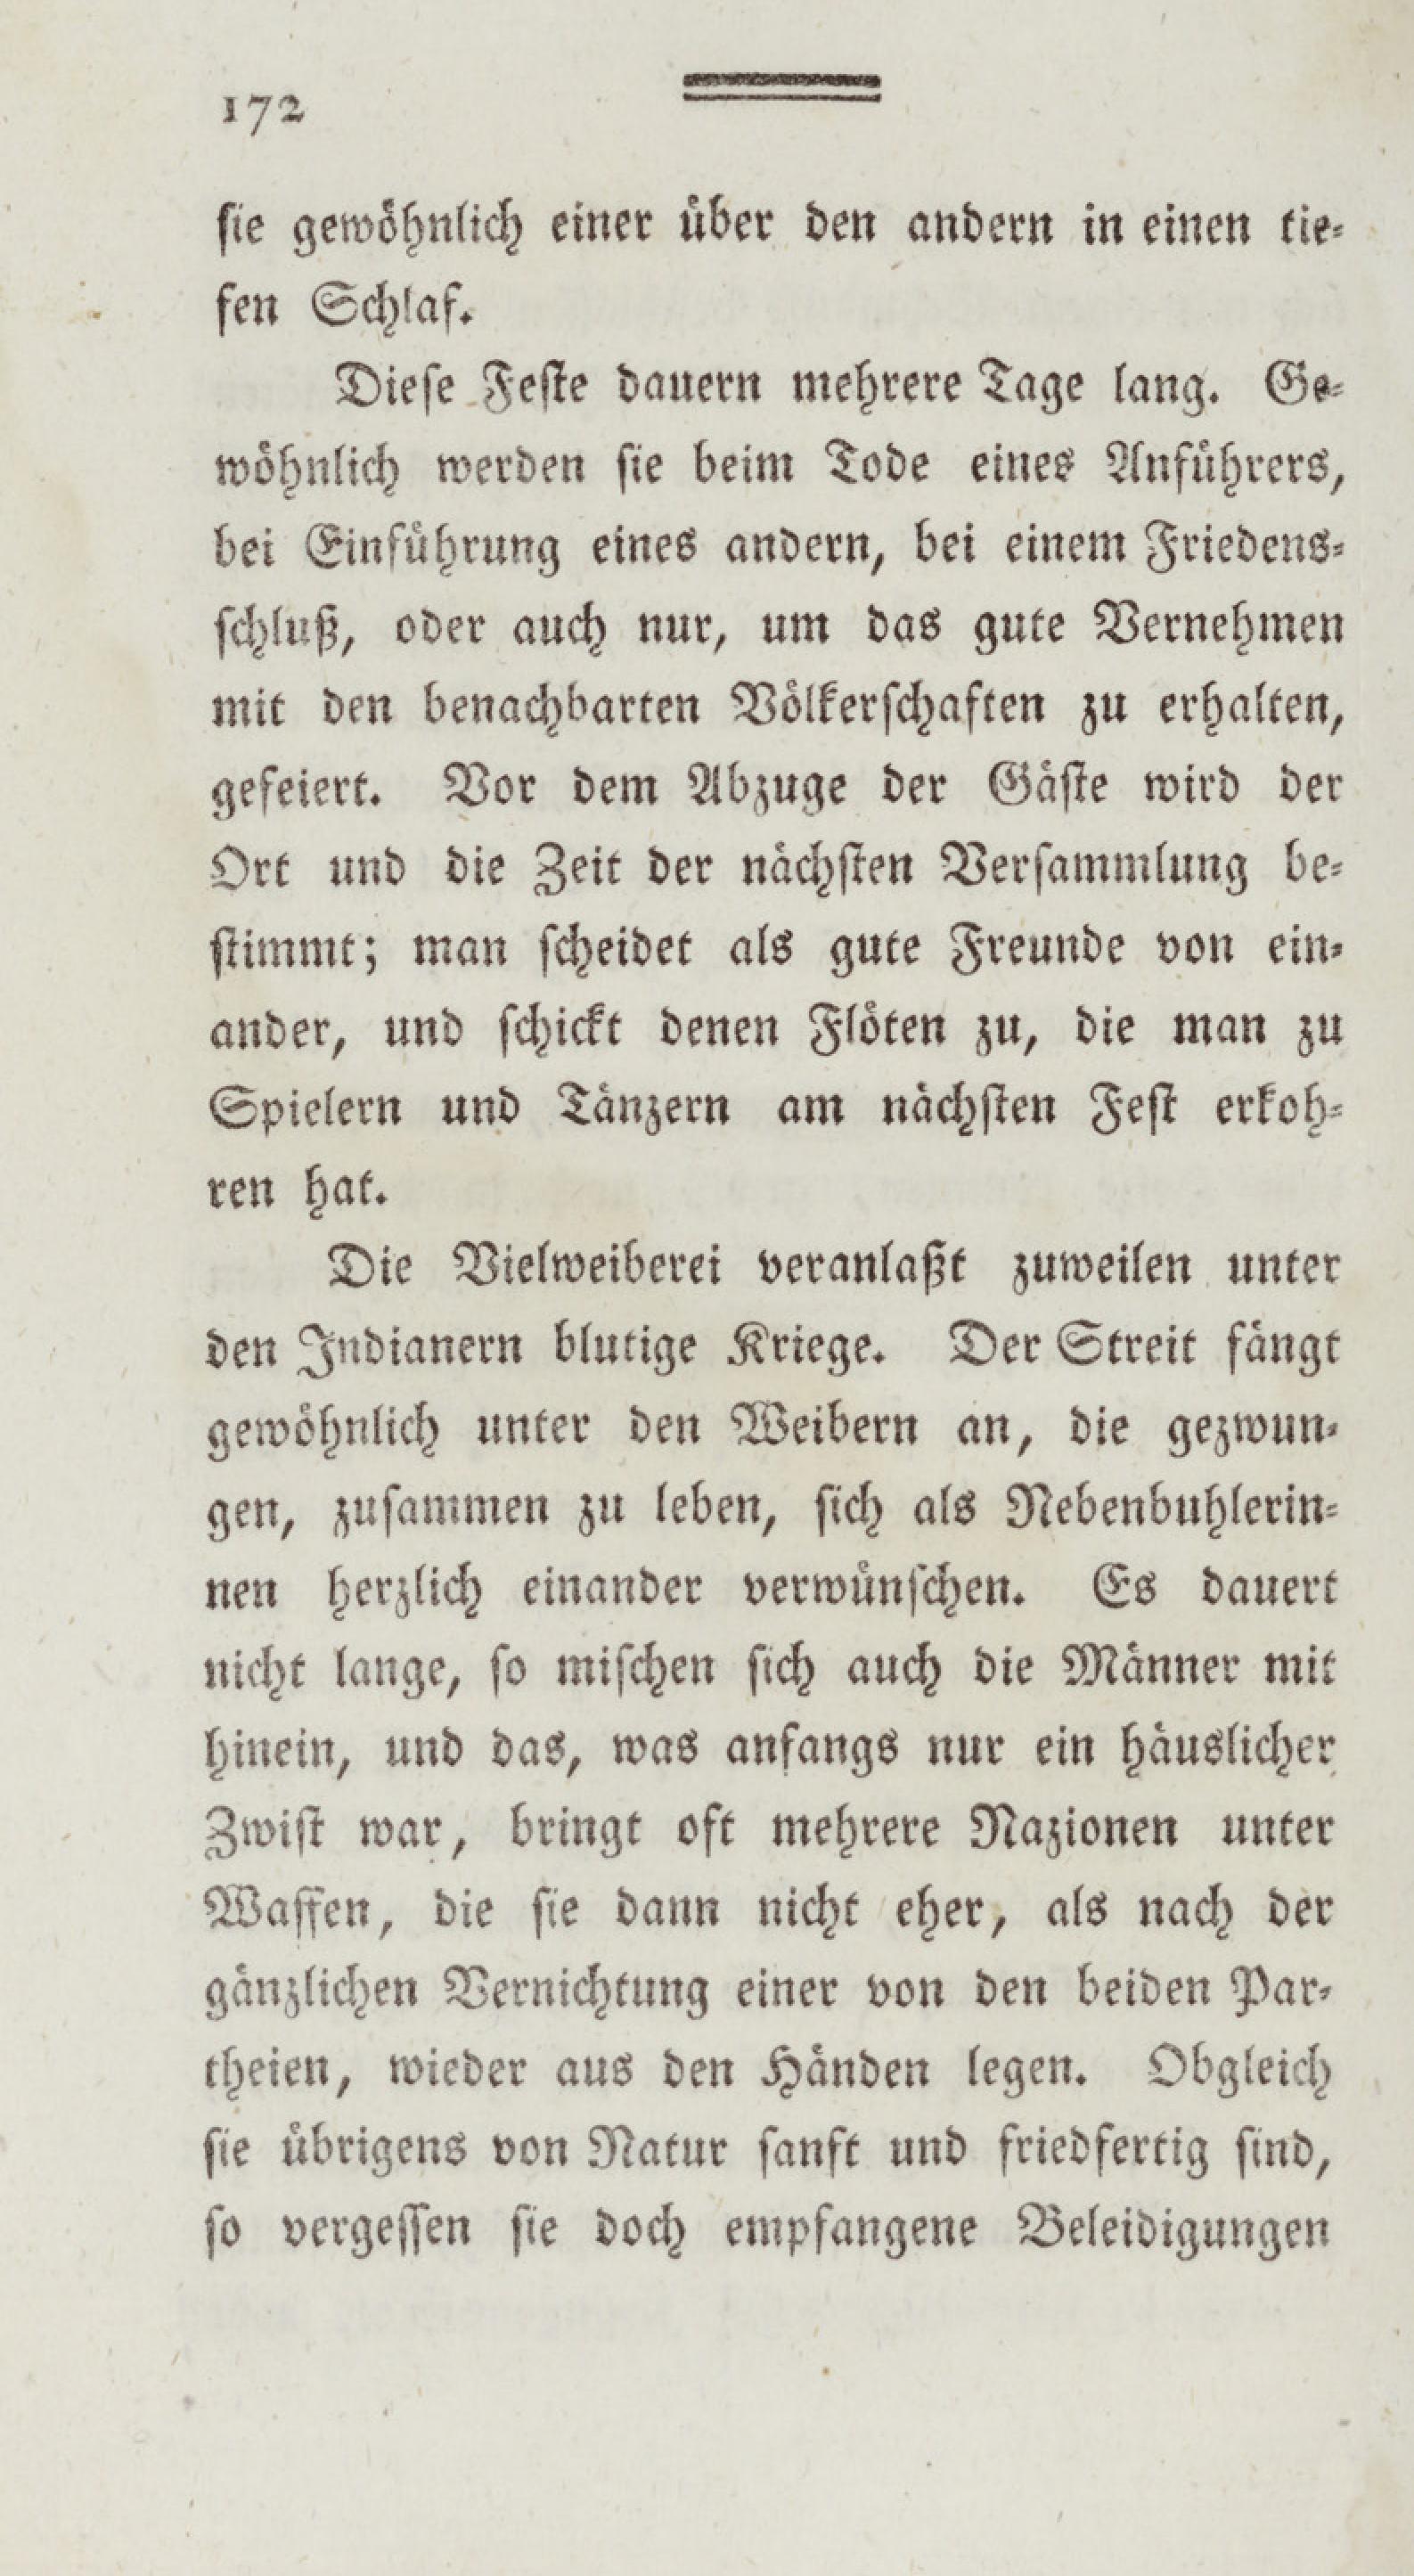 172
sie gewöhnlich einer über den andern in einen tie-
fen Schlaf.
Diese Feste dauern mehrere Tage lang. Ge-
wöhnlich werden sie beim Tode eines Anführers,
bei Einführung eines andern, bei einem Friedens-
schluß, oder auch nur, um das gute Vernehmen
mit den benachbarten Völkerschaften zu erhalten,
gefeiert. Vor dem Abzuge der Gäste wird der
Ort und die Zeit der nächsten Versammlung be-
stimmt; man scheidet als gute Freunde von ein-
ander, und schickt denen Flöten zu, die man zu
Spielern und Tänzern am nächsten Fest erkoh-
ren hat.
Die Vielweiberei veranlaßt zuweilen unter
den Indianern blutige Kriege. Der Streit fängt
gewöhnlich unter den Weibern an, die gezwun-
gen, zusammen zu leben, sich als Nebenbuhlerin-
nen herzlich einander verwünschen. Es dauert
nicht lange, so mischen sich auch die Männer mit
hinein, und das, was anfangs nur ein häuslicher
Zwist war, bringt oft mehrere Nazionen unter
Waffen, die sie dann nicht eher, als nach der
gänzlichen Vernichtung einer von den beiden Par-
theien, wieder aus den Händen legen. Obgleich
sie übrigens von Natur sanft und friedfertig sind,
so vergessen sie doch empfangene Beleidigungen